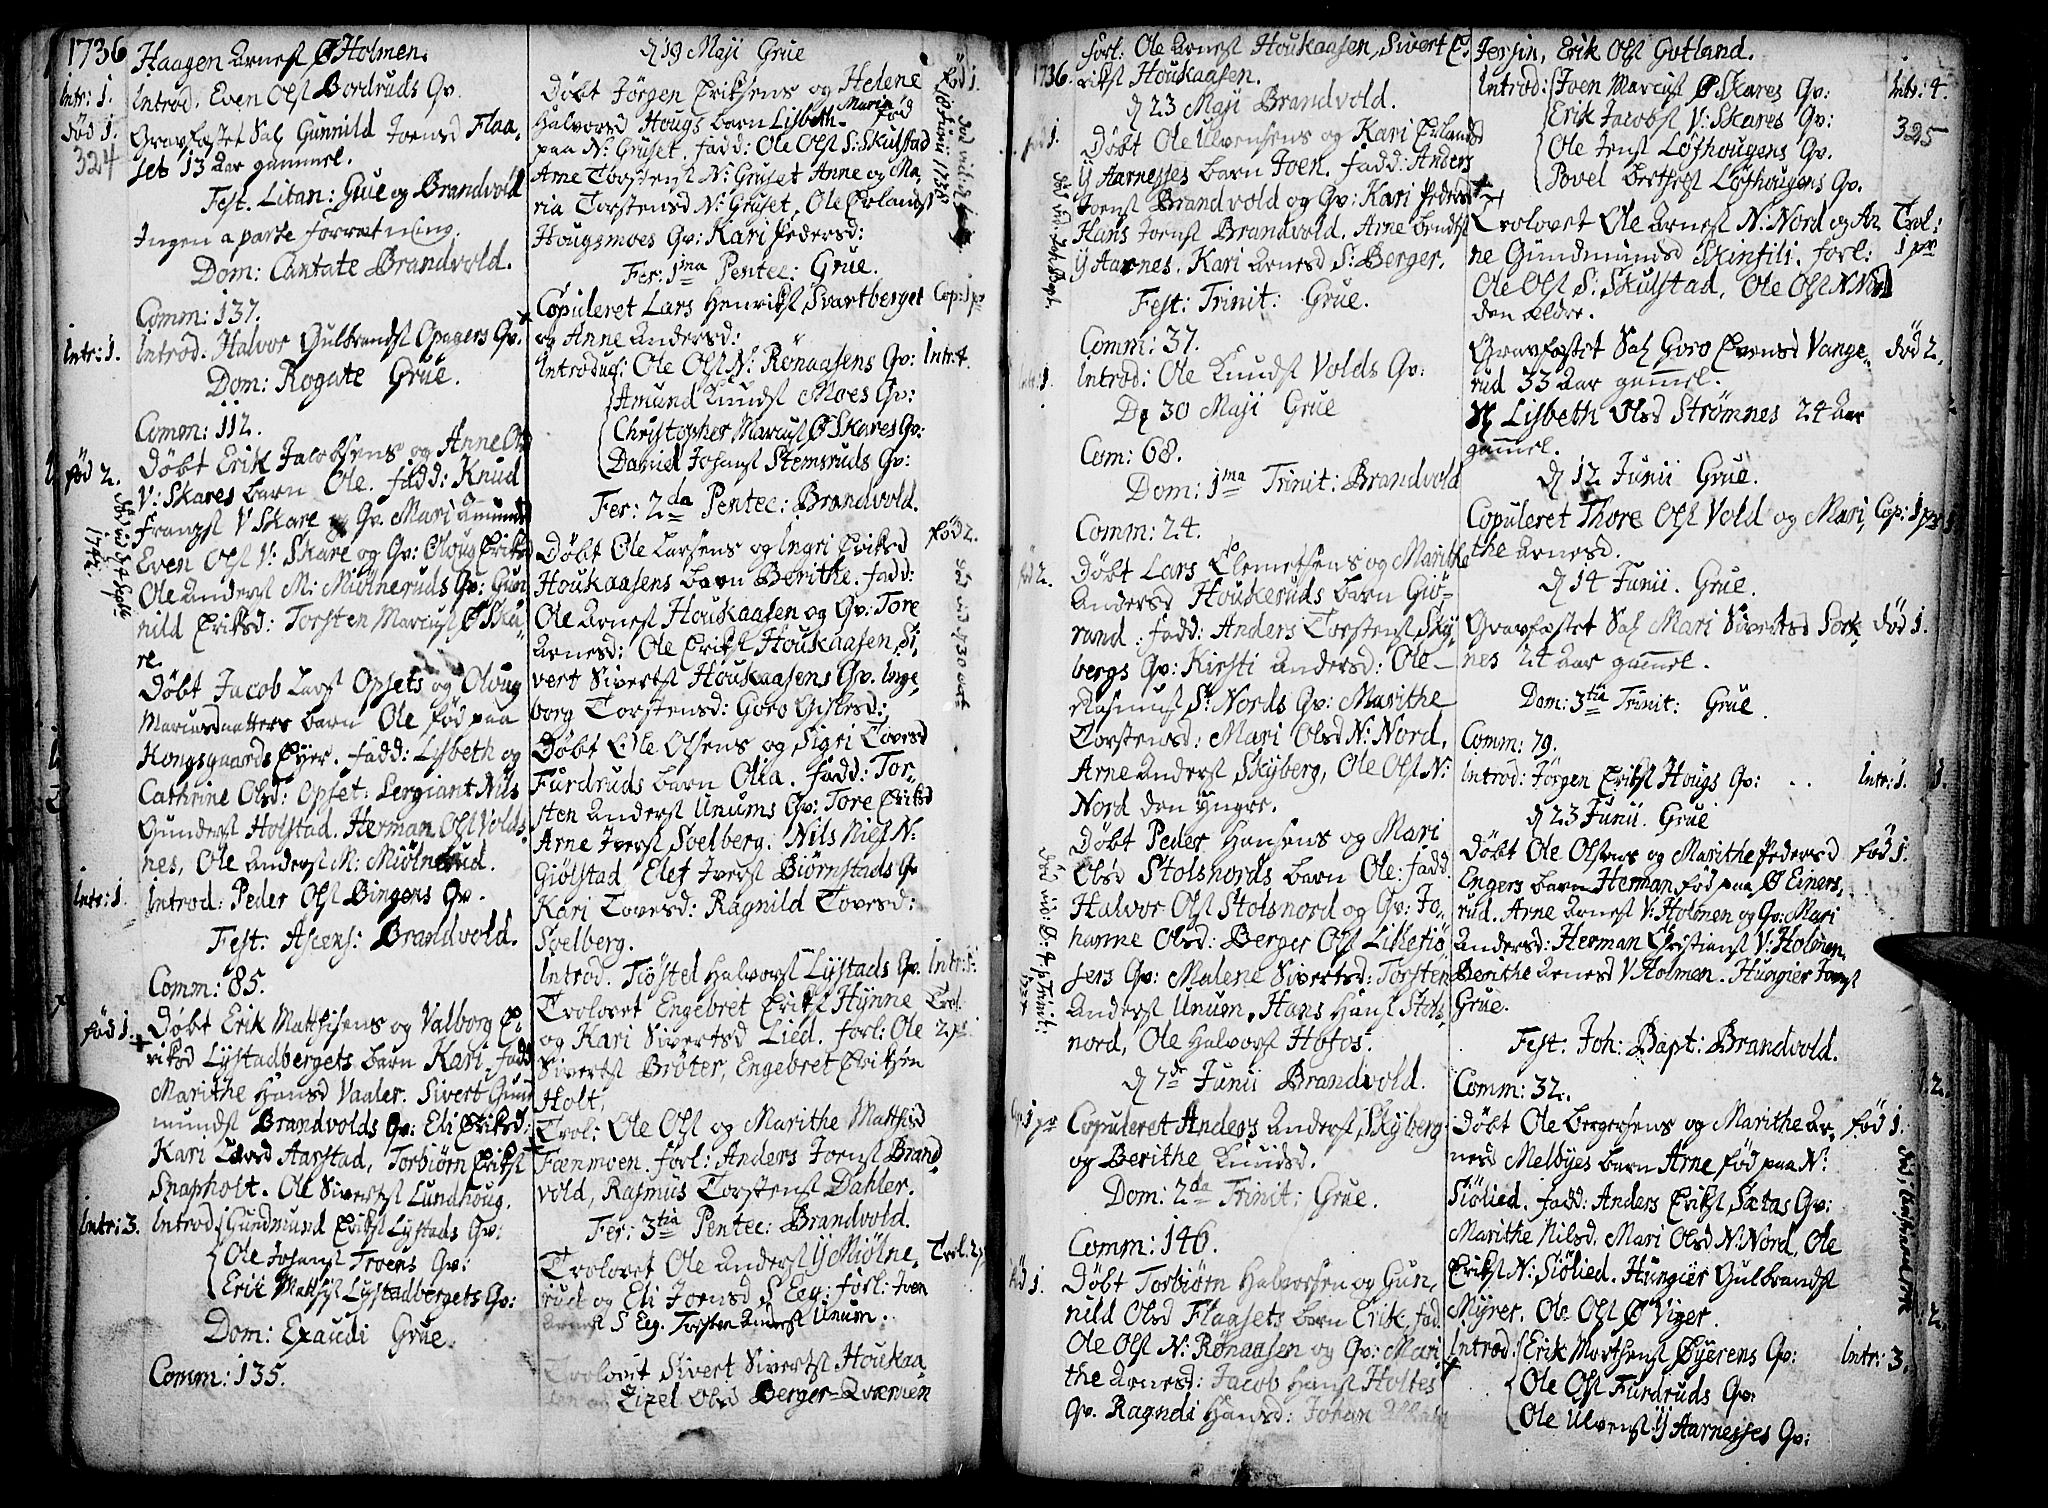 1736
Haagen Arnesł Ø Holmen.
Intr: 1.
Introd. Even Olsł Bordruds Qv.
død 1.
Gravfæstet Sal Gunnild Joensd Flaa-
324
set 13 Aar gammel.
Fest. Litan: Grue og Brandvold
Ingen aparte forretning.
Dom: Cantate Brandvold.
Comm: 137.
Intr: 1.
Introd. Halvor Gulbrandsł Opagers Qv.
Dom: Rogate Grue.
Comm: 112.
Døbt Erik Jacobsens og Anne Ols
fød 2.
V: Skares barn Ole. fadd: Knud
Franzsł V Skare og Qv. Mari Amunds
Even Olsł V: Skare og Qv: Oloug Eriksd
Ole Andersł M: Miølneruds Qv: Gun
nild Eriksd: Torsten Marcusł Ø Ska-
re.
Døbt Jacob Larsł Opsets og Oloug
Marcusdatters barn Ole fød paa
Hongsgaards Eyer. fadd: Lisbeth og
Cathrine Olsd: Opset: Sergiant Nils
Gundersł Holstad. Herman Olsł Volds-
nes, Ole Andersł M: Miølnerud.
Intr: 1.
Introd: Peder Olsł Dingens Qv.
Fest: Ascens: Brandvold.
Comm: 85.
fød 1.
Døbt Erik Matthisens og Valborg E-
riksd Lystadbergets barn Kari. fadd
Marithe Hansd Vaaler. Sivert Gud
mundsł Brandvolds Qv: Eli Eriksd:
Kari Larsd Aarstad, Torbiørn Eriksł
Snapholt. Ole Sivertsł Lundhoug.
Intr: 3.
Introd: Gundmund Eriksł Lystads Qv:
Ole Johansł Troens Qv:
Erik Matthisł Lystadbergets Qv:
Dom: Exaudi Grue.
Comm: 135.
d 19 Maji Grue
Døbt Jørgen Eriksens og Helene
fød 1.
Halvorsd Hougs barn Lisbeth Marin fød
paa N: Gruset. fadd: Ole Olsł S: Skulstad
Arne Torstensł N: Gruset Anne og Ma-
ria Torstensd N: Gruset, Ole Erlandsł
Hougsmoes Qv: Kari Pedersd:
Fer: 1ma Pentec: Grue.
Copuleret Lars Henriksł Svartberget
Cop: 1 pr
og Anne Andersd:
Introduc: Ole Olsł N: Rønaasens Qv:
Intr: 4.
Amund Knudsł Moes Qv:
Christopher Marcusł Ø Skares Qv:
Daniel Johansł Stemsruds Qv:
Fer: 2da Pentec: Brandvold.
Døbt Ole Larsens og Ingri Eriksd
fød 2.
Houkaasens barn Berithe. fadd:
Ole Arnesł Houkaasen og Qv: Tore
Arnesd: Ole Eriksł Houkaasen, Si-
vert Sivertsł Houkaasens Qv. Inge-
borg Torstensd: Goro Gislesd:
Døbt Ole Olsens og Sigri Tovesd
Furdruds barn Olia. fadd: Tor-
sten Andersł Unums Qv: Tore Eriksd
Arne Iversł Svelberg. Nils Nilsł N:
Giølstad Elef Iversł Biørnstads Qv
Kari Tovesd: Ragnild Tovesd:
Svelberg.
Introd. Kiøstel Halvorsł Lystads Qv.
Intr: 1.
Trolovet Engebret Eriksł Hynne
Trol.
og Kari Sivertsd Lied. forl: Ole
2 pr
Sivertsł Brøter, Engebret Eriksen
Holt,
Trol: Ole Olsł og Marithe Matthisd
Fænmoen. forl: Anders Joensł Brand-
vold, Rasmus Torstensł Dahler.
Fer: 3tia Pentec: Brandvold.
Trolovet Ole Andersł Y Miølne-
Trol. 2 pr
rud og Eli Joensd S Eeg: forl: Iven
Arnesł S Eeg. Torsten Andersł Unum.
Trolovet Sivert Sivertsł Houkaa-
sen og Zizel Olsd Berger-Qværnen
1736.
forl: Ole Arnesł Houkaasen, Sivert E-
riksł Houkaasen.
d 23 Maji Brandvold.
fød 1.
Døbt Ole Ulvensens og Kari Erlands
Y Aarnesses barn Joen. fadd: Anders
Joensł Brandvold og Qv: Kari Pedersd
Hans Joensł Brandvold. Arne bendtsł
Y Aarnes. Kari Arnesd S: Berger.
Fest: Trinit: Grue.
Comm: 37.
Intr: 1.
Introd: Ole Knudsł Volds Qv:
D 30 Maji Grue
Com: 68.
Dom: 1ma Trinit: Brandvold
Comm: 24.
fød 2.
Døbt Lars Clemetsens og Marithe
Andersd Houkeruds barn Giø-
rand. fadd: Anders Torstensł Sky
bergs Qv: Kirsti Andersd: Ole
Rasmusł S: Nords Qv: Marithe
Torstensd: Mari Olsd N: Nord,
Arne Andersł Skyberg, Ole Olsł N:
Nord den Yngre.
Døbt Peder Hansens og Mari
Olsd Stolsnords barn Ole: fadd
Halvor Olsł Stolsnord og Qv: Jo-
hanne Olsd: Berger Olsł Lilletiø
sers Qv: Malene Sivertsd: Torsten
Andersł Unum, Hans Hansł Stols-
nord, Ole Halvorsł Hofos.
d 7de Junii Brandvold.
Cop: 1 pr
Copuleret Anders Andersł Skyberg
og Berithe Knudsd.
Dom: 2da Trinit: Grue.
Comm: 146.
fød 1.
Døbt Torbiørn Halvorsen og Gun-
nild Olsd Flaasets barn Erik, fad.
Ole Olsł N: Rønaasen og Qv: Mari-
the Arnesd: Jacob Hansł Holtes
Qv. Ragndi Hansd: Johan
Jersin, Erik Olsł Gotland.
Introd: Joen Marcusł Ø Skares Qv:
Intr: 4.
Erik Jacobsł V: Skares Qv:
325
Ole Jensł Løfhougens Qv.
Povel berthelsł Løfhougens Qv.
Trolovet Ole Arnesł N: Nord og An
Trol:
ne Gundmundsd Skinfili. forl:
1 pr
Ole Olsł S: Skulstad, Ole Olsł N Nord
den Ældre.
Gravfæstet Sal Goro Evensd Vange-
død 2.
rud 33 Aar gammel.
Sl Lisbeth Olsd Strømnes 24 Aar
gammel.
d 12 Junii Grue.
Copuleret Thore Olsł Vold og Mari-
Cop: 1 pr
the Arnesd.
d 14 Junii. Grue.
Gravfæstet Sal Mari Sivertsd Sork-
død 1.
nes 24 Aar gammel.
Dom: 3tia Trinit: Grue.
Comm: 79.
Introd: Jørgen Eriksł Hougs Qv:
Intr: 1.
d 23 Junii. Grue
Døbt Ole Olsens og Marithe Pedersd
fød 1.
Engers barn Herman fød paa Ø Einers-
rud. Arne Arnesł V: Holmen og Qv: Mari
Andersd: Herman Christiansł V: Holmen,
Berithe Arnesd V. Holmen. Hungier Joensł
Grue.
Fest. Joh: Bapt: Brandvold.
Comm: 32.
Døbt Ole Bergersens og Marithe Ar-
fød 1.
nesd Melbyes barn Arne fød paa N:
Siølied. fadd: Anders Eriksł Sætas Qv:
Marithe Nilsd. Mari Olsd N: Nord, Ole
Eriksł N: Siølied. Hungier Gulbrandsł
Myrer. Ole Olsł Ø Viger.
Introd: Erik Morthensł Øyerens Qv:
Intr: 3.
Ole Olsł Furdruds Qv:
Ole Ulvensł Y Aarnesses Qv: